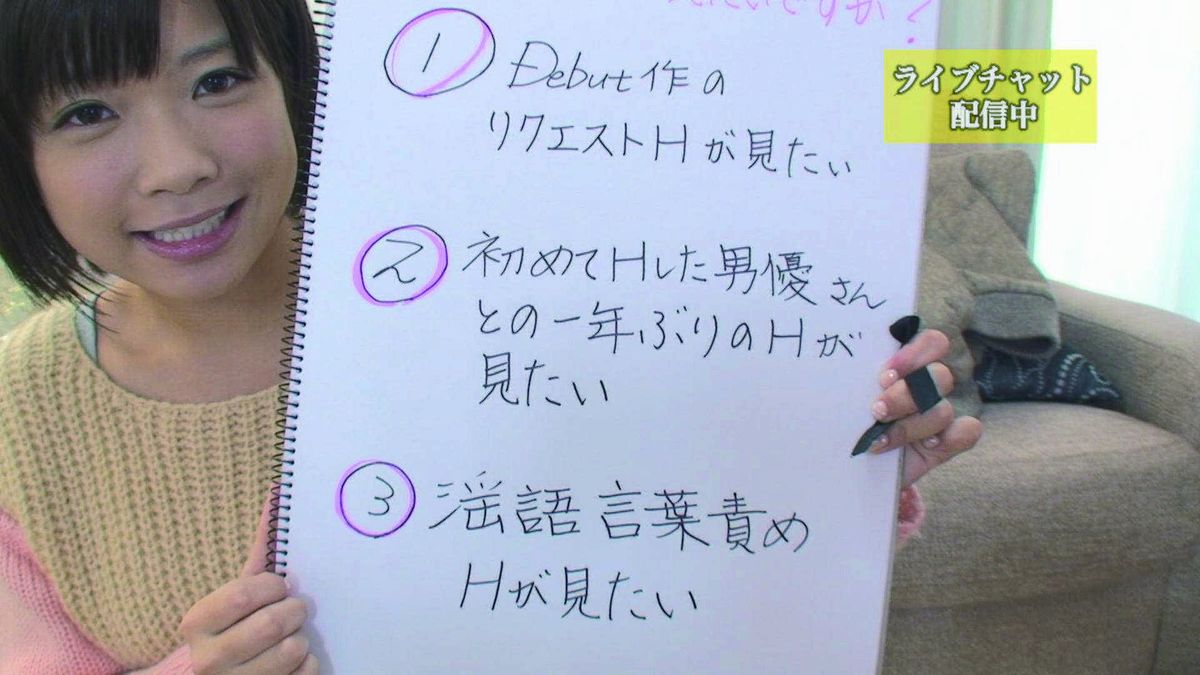 見たいですか?
1 Debut作の
リクエストHが見たい
2 初めてHした男優さん
との一年ぶりのHが
見たい
3 淫語言葉責め
Hが見たい
ライブチャット
配信中